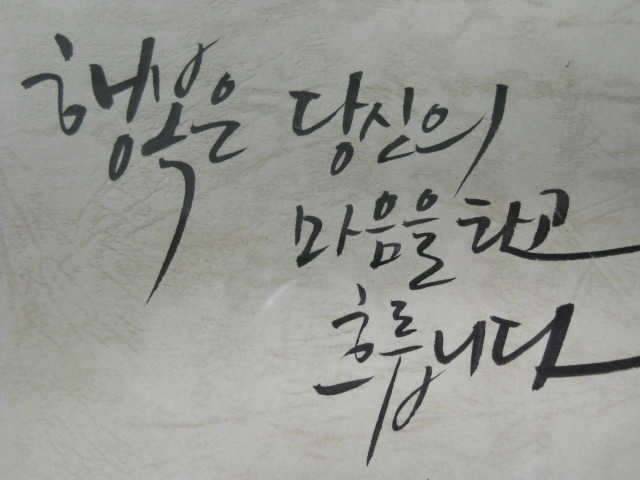 행복은 당신의
마음을 타고
흐릅니다